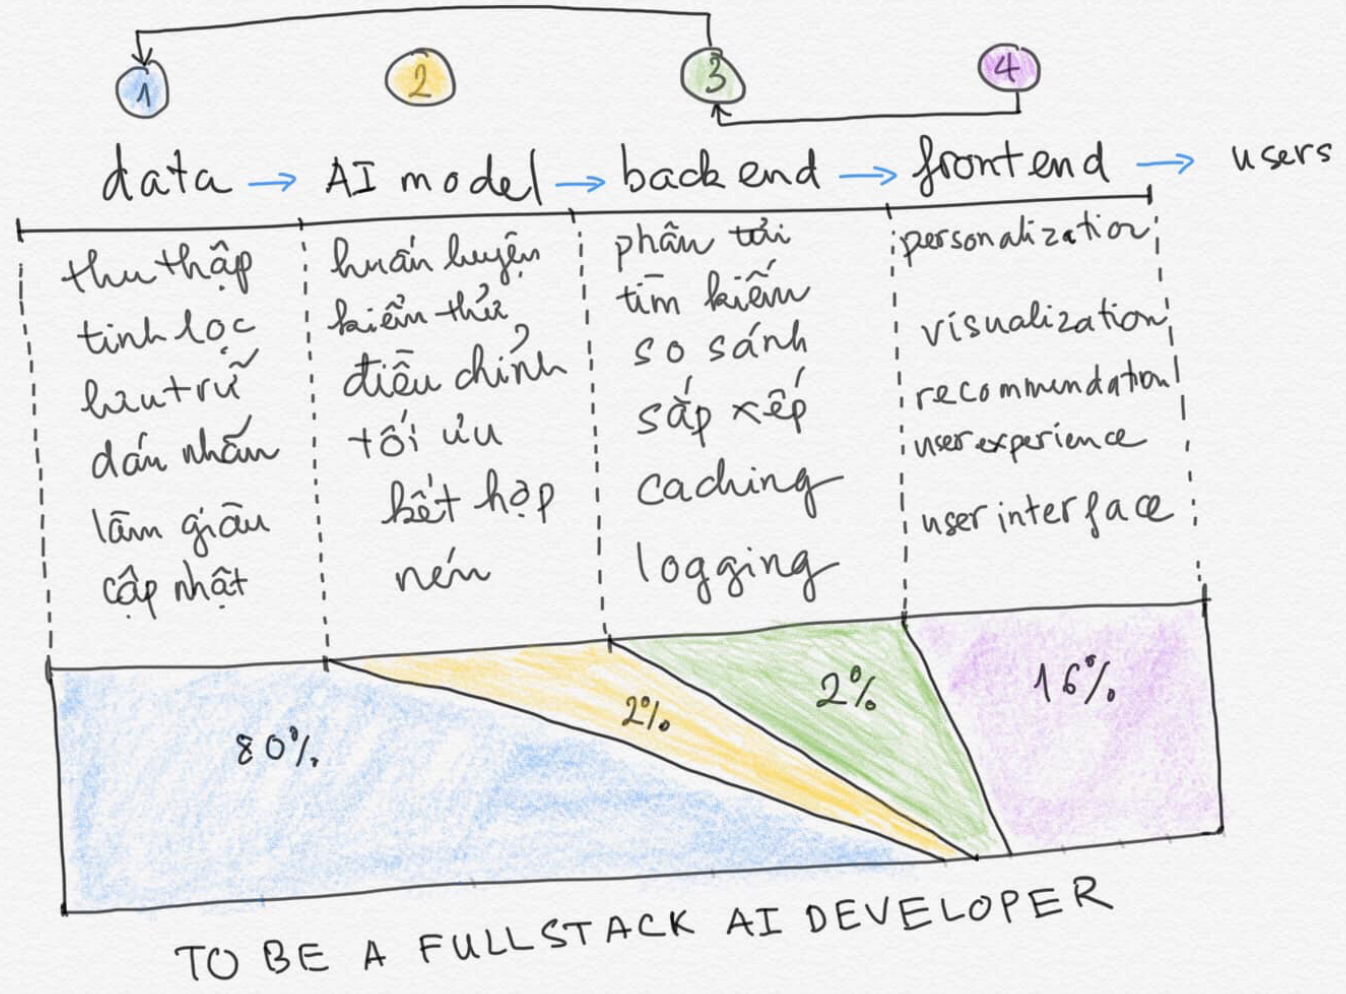 1 2 3 4
data → AI model → back end → frontend → users
thu thập
tinh lọc
lưu trữ
dán nhãn
làm giàu
cập nhật
huấn luyện
kiểm thử
điều chỉnh
tối ưu
kết hợp
nén
phân tải
tìm kiếm
so sánh
sắp xếp
caching
logging
personalization
visualization
recommendation
user experience
user interface
80%
2%
2%
16%
TO BE A FULLSTACK AI DEVELOPER